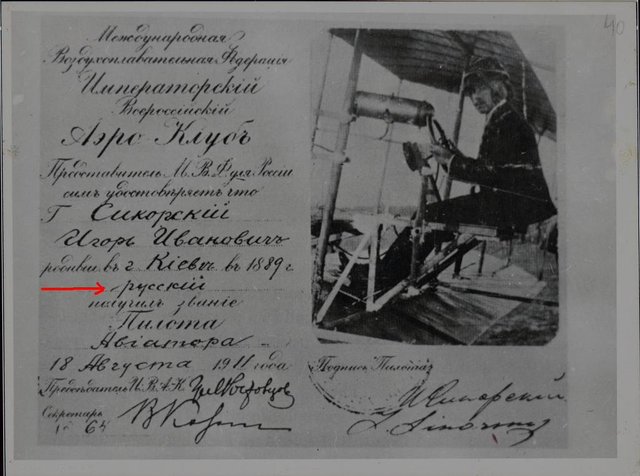 40
Международная
Воздухоплавательная Федерація
Императорскій
Всероссійскій
Аэро-Клубъ
Представитель М. В. Ф. для Россіи
симъ удостовѣряетъ что
Г Сикорскій
Игорь Ивановичъ
родивш. въ г. Кіевѣ въ 1889 г.
русскій
получилъ званіе
Пилота
Авіатора
18 Августа 1911 года
Предсѣдатель И. В. А. К.
Секретарь
64
Подпись Пилота
ИСикорскій
I. Sikorsky